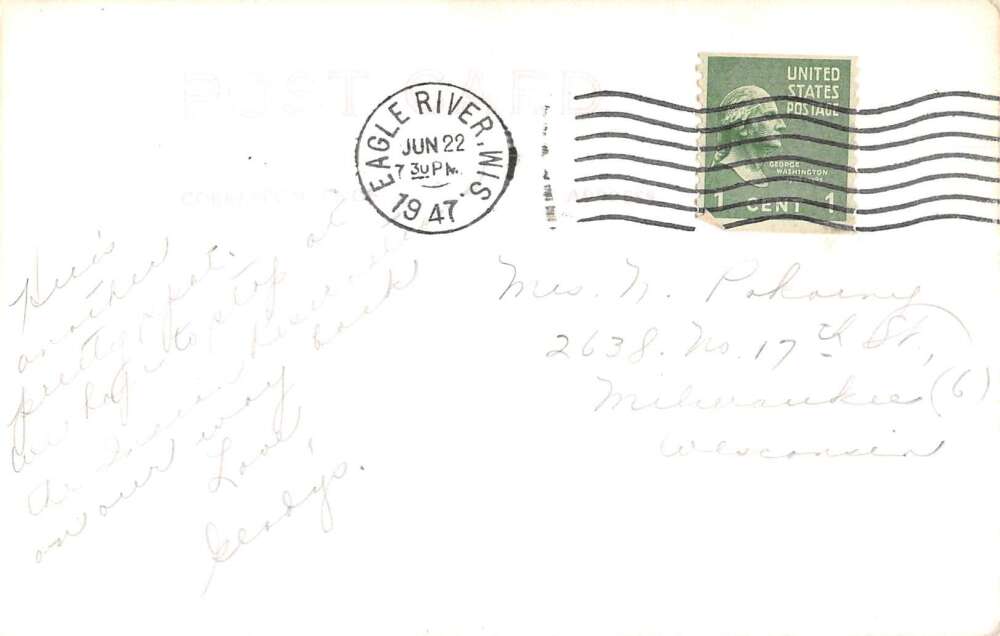 POST CARD
EAGLE RIVER, WIS.
JUN 22
7 30 PM
1947
UNITED
STATES
POSTAGE
GEORGE
WASHINGTON
1 CENT 1
Here's
another
pretty spot.
We hope to stop at
the Indian Reservation
on our way back
Love,
Gladys.
Mrs. N. Pokorny
2638. No. 17th St.,
Milwaukee (6)
Wisconsin